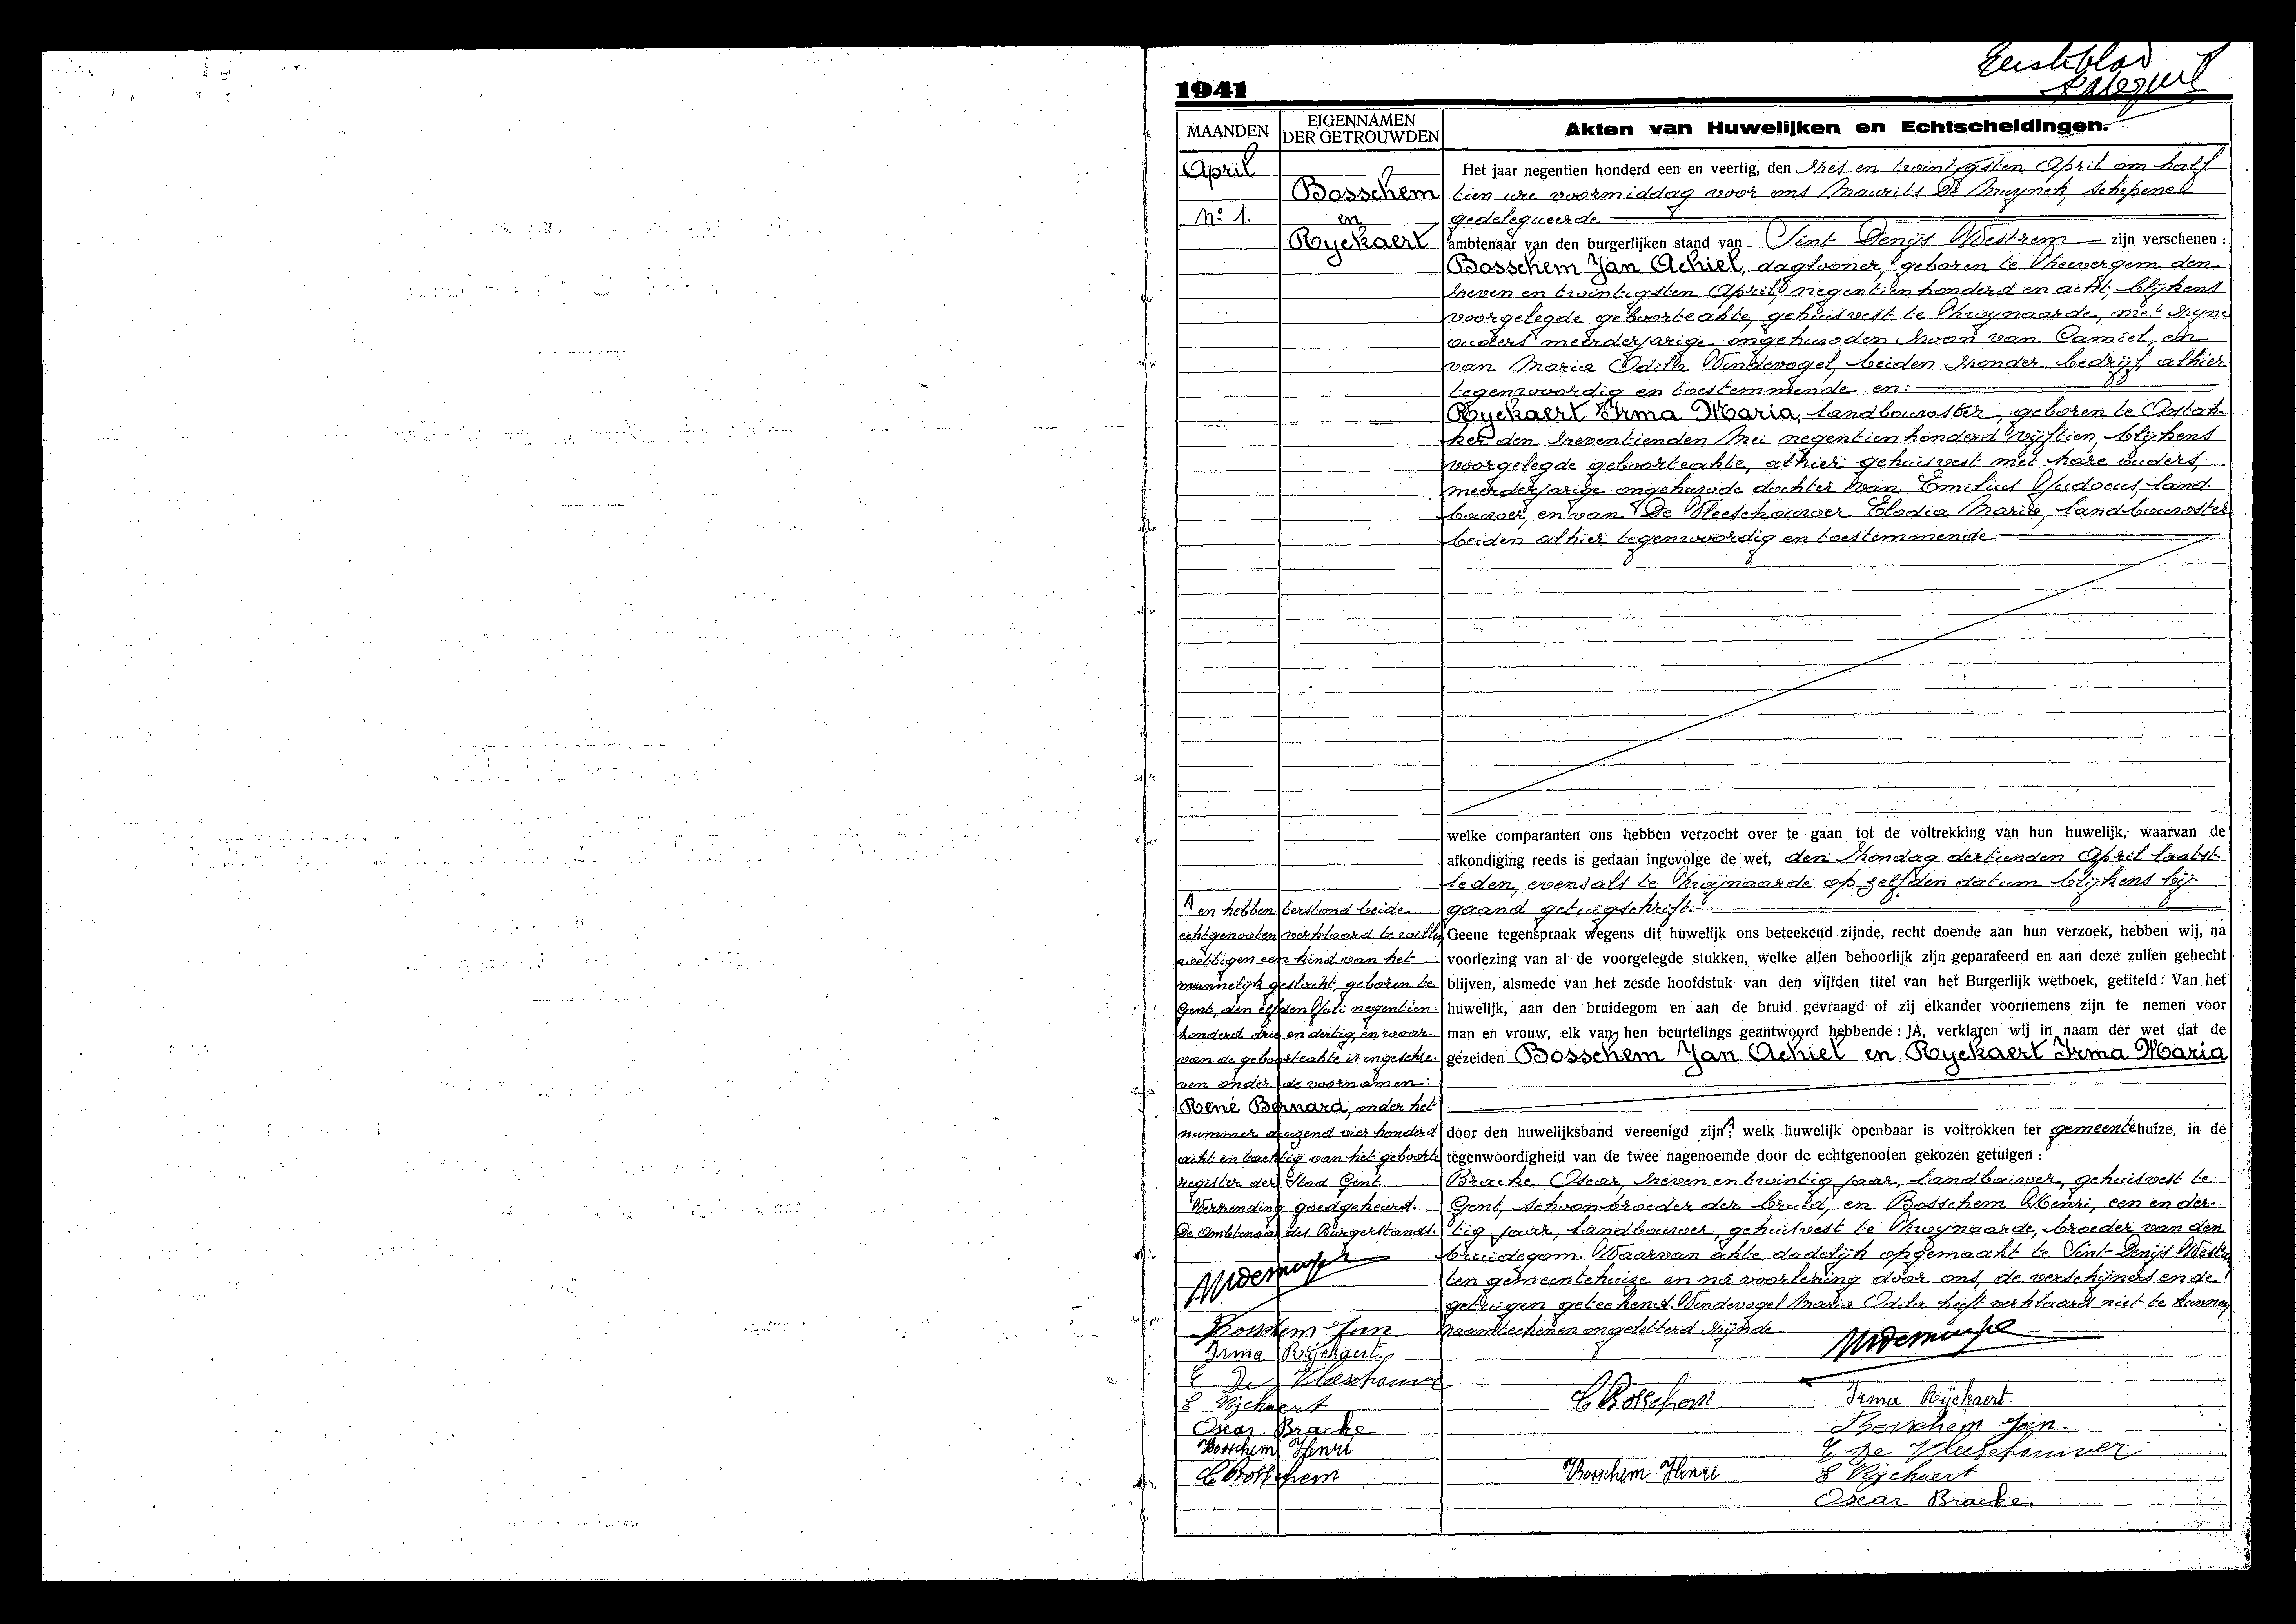 Eerste blad
1941
MAANDEN
EIGENNAMEN DER GETROUWDEN
Akten van Huwelijken en Echtscheidingen.
April
No 1.
Bosschem
en
Ryckaert
Het jaar negentien honderd een en veertig, den zes en twintigsten April om half
tien ure voormiddag voor ons Maurits De Muynck, schepene
gedelegueerde
ambtenaar van den burgerlijken stand van Sint Denijs Westrem zijn verschenen :
Bosschem Jan Achiel, daglooner, geboren te Sheevergem den
zeven en twintigsten April negentienhonderd en acht, blijkens
voorgelegde geboorteakte, gehuisvest te Zwynaarde, met zijne
ouders meerderjarige ongehuwden zoon van Camiel, en
van Maria Odilla Windevogel, beiden zonder bedrijf, alhier
tegenwoordig en toestemmende en:
Ryckaert Irma Maria, landbouwster, geboren te Oostak-
ker den zeventienden Mei negentienhonderd vijftien, blijkens
voorgelegde geboorteakte, alhier gehuisvest met hare ouders,
meerderjarige ongehuwde dochter van Emilius Judocus, land-
bouwer, en van De Vleeschouwer Elodia Maria, landbouwster
beiden alhier tegenwoordig en toestemmende
welke comparanten ons hebben verzocht over te gaan tot de voltrekking van hun huwelijk, waarvan de
afkondiging reeds is gedaan ingevolge de wet, den Zondag dertienden April laatst-
leden, evenals te Zwijnaarde op zelfden datum blijkens bij-
gaand getuigschrift.
Geene tegenspraak wegens dit huwelijk ons beteekend zijnde, recht doende aan hun verzoek, hebben wij, na
voorlezing van al de voorgelegde stukken, welke allen behoorlijk zijn geparafeerd en aan deze zullen gehecht
blijven, alsmede van het zesde hoofdstuk van den vijfden titel van het Burgerlijk wetboek, getiteld : Van het
huwelijk, aan den bruidegom en aan de bruid gevraagd of zij elkander voornemens zijn te nemen voor
man en vrouw, elk van hen beurtelings geantwoord hebbende : JA, verklaren wij in naam der wet dat de
gezeiden Bosschem Jan Achiel en Ryckaert Irma Maria
door den huwelijksband vereenigd zijn; welk huwelijk openbaar is voltrokken ter gemeentehuize, in de
tegenwoordigheid van de twee nagenoemde door de echtgenooten gekozen getuigen :
Bracke Oscar, zeven en twintig jaar, landbouwer, gehuisvest te
Gent, schoonbroeder der bruid, en Bosschem Henri, een en der-
tig jaar, landbouwer, gehuisvest te Zwynaarde, broeder van den
bruidegom. Waarvan akte dadelijk opgemaakt te Sint-Denijs Westre
ten gemeentehuize en na voorlezing door ons, de verschijners en de
getuigen geteekend. Windevogel Maria Odila heeft verklaard niet te kunnen
naamteekenen ongeletterd zijnde
en hebben terstond beide
echtgenooten verklaard te willen
wettigen een kind van het
mannelijk geslacht, geboren te
Gent, den elfden Juli negentien-
honderd drie en dertig, en waar-
van de geboorteakte is ingeschre-
ven onder de voornamen:
René Bernard, onder het
nummer duizend vier honderd
acht en tachtig van het geboorte
register der Stad Gent
Verzending goedgekeurd.
De Ambtenaar des Burgerstands.
Bosschem Jan
Irma Ryckaert
E De Vleeschouwer
E Ryckaert
Oscar Bracke
Bosschem Henri
C Bosschem
C Bosschem
Irma Ryckaert.
Bosschem Jan.
E De Vleeschouwer
Bosschem Henri
E Ryckaert
Oscar Bracke.